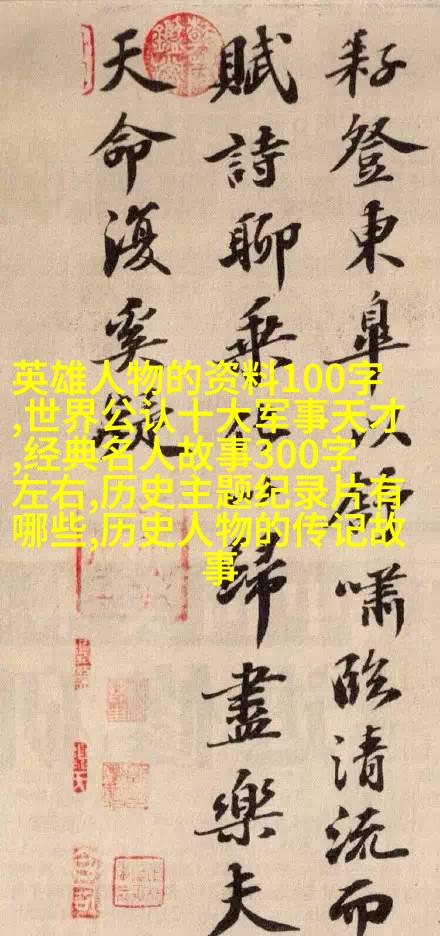 耔登東皋以舒嘯臨清流而
賦詩聊乘化以歸盡樂夫
天命復奚疑
英雄人物的资料100字
,世界公认十大军事天才
,经典名人故事300字
左右,历史主题纪录片有
哪些,历史人物的传记故
事